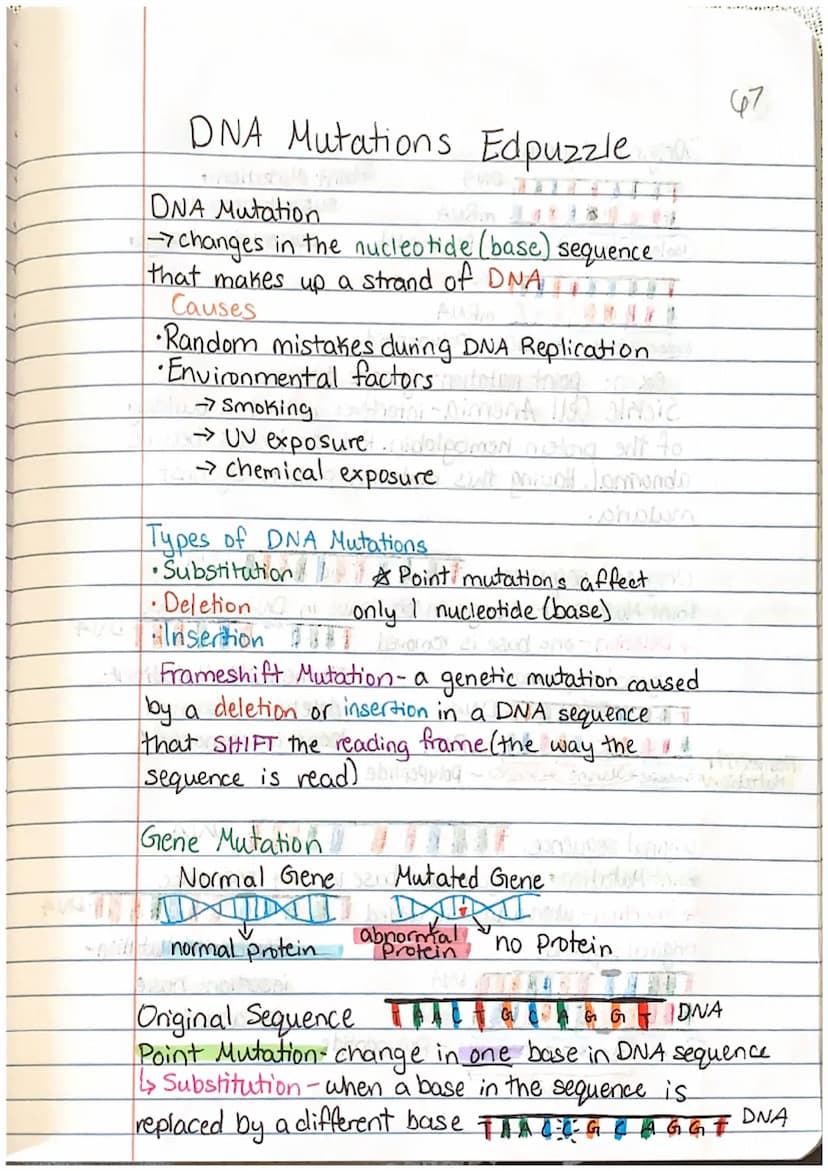 67
DNA Mutations Edpuzzle
DNA Mutation
→ changes in the nucleotide (base) sequence
that makes up a strand of DNA
Causes
• Random mistakes during DNA Replication
• Environmental factors
→ smoking
→ UV exposure
→ chemical exposure
Types of DNA Mutations
• Substitution ☆ Point mutations affect
• Deletion only 1 nucleotide (base)
• Insertion
Frameshift Mutation - a genetic mutation caused
by a deletion or insertion in a DNA sequence
that SHIFT the reading frame (the way the
sequence is read)
Gene Mutation
Normal Gene Mutated Gene
normal protein abnormal protein no protein
Original Sequence T A A C T G C A G G T DNA
Point Mutation - change in one base in DNA sequence
↳ Substitution - when a base in the sequence is
replaced by a different base T A A C C G C A G G T DNA